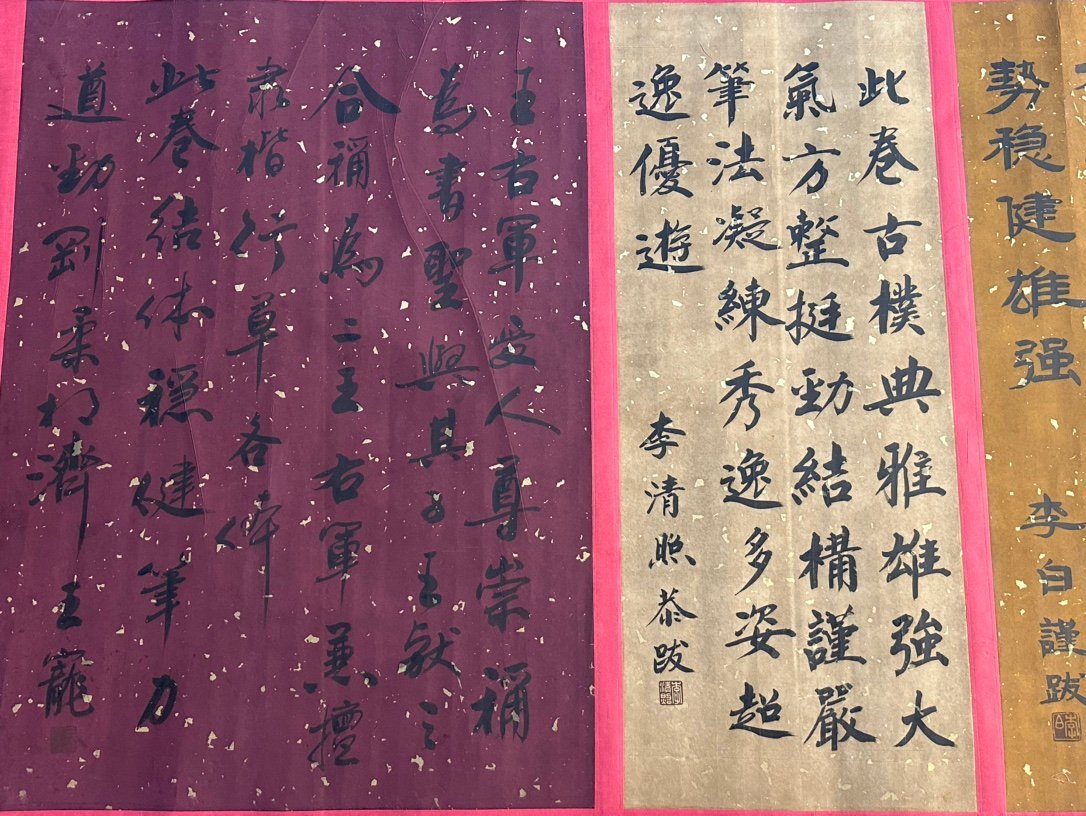 勢稳健雄强
李白謹跋
此卷古樸典雅雄強大
氣方整挺勁結構謹嚴
筆法凝練秀逸多姿超
逸優遊
李清照恭跋
王右軍受人尊崇稱
為書聖與其子王献之
合稱為二王王右軍兼擅
隶楷行草各体
此卷结体穩健筆力
遒勁剛柔相濟王寵